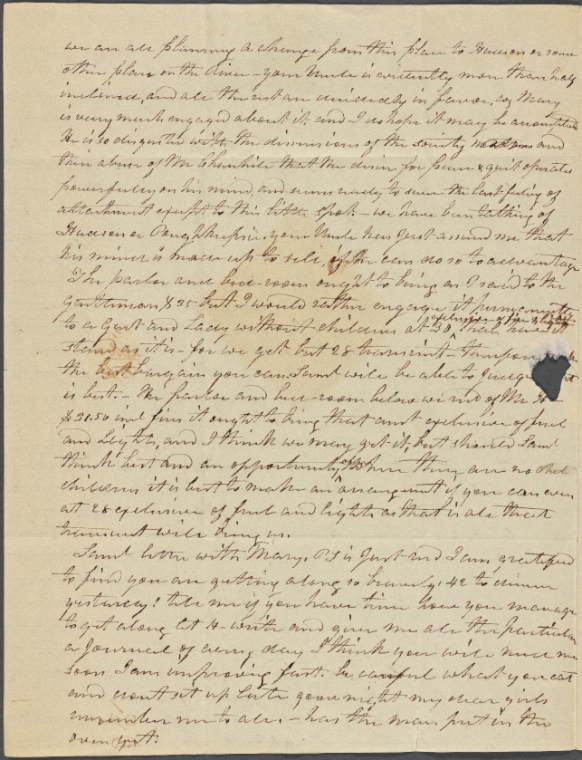 we are all planning a change from this place to Hudson or some
other place on the River - your Uncle is evidently more than half
inclined, and all the rest are decidedly in favor, as Mary
is very much engaged about it, and I do hope it may be accomplished
He is so disgusted with the dissensions of the society and
their abuse of Mr that the desire for peace & quiet operates
powerfully on his mind, and seems ready to sever the last feeling of
attachment except to this little spot - we have been talking of
Hudson or Poughkeepsie. your Uncle has just assured me that
his mind is made up to sell if he can do so to advantage
The parlor and bed-room ought to bring as I said to the
gentleman $35 but I would rather engage it permanently
to a Gent and Lady without children at 30, than have it
stand as it is - for we get but 28 transient -
the best bargain you can. Saml will be able to judge
is best. - the parlor and bed-room below
$31.50 incl fire it ought to bring that amt exclusive of fuel
and Lights, and I think we may get it, but should Saml
think best and an opportunity offer where they are no
children it is best to make an arrangement if you can even
at 28 exclusive of fuel and lights as that is all that
transient will bring us.
Saml letter with Mary's PS is just recd I am gratified
to find you are getting along so bravely, 42 to dinner
yesterday! tell me if you have time how you manage
to get along let H- write and give me all the particulars
a Journal of every day I think you will need me
soon I am improving fast. be careful what you eat
and dont set up late good night my dear girls
remember me to all - has the man put in the
oven yet.